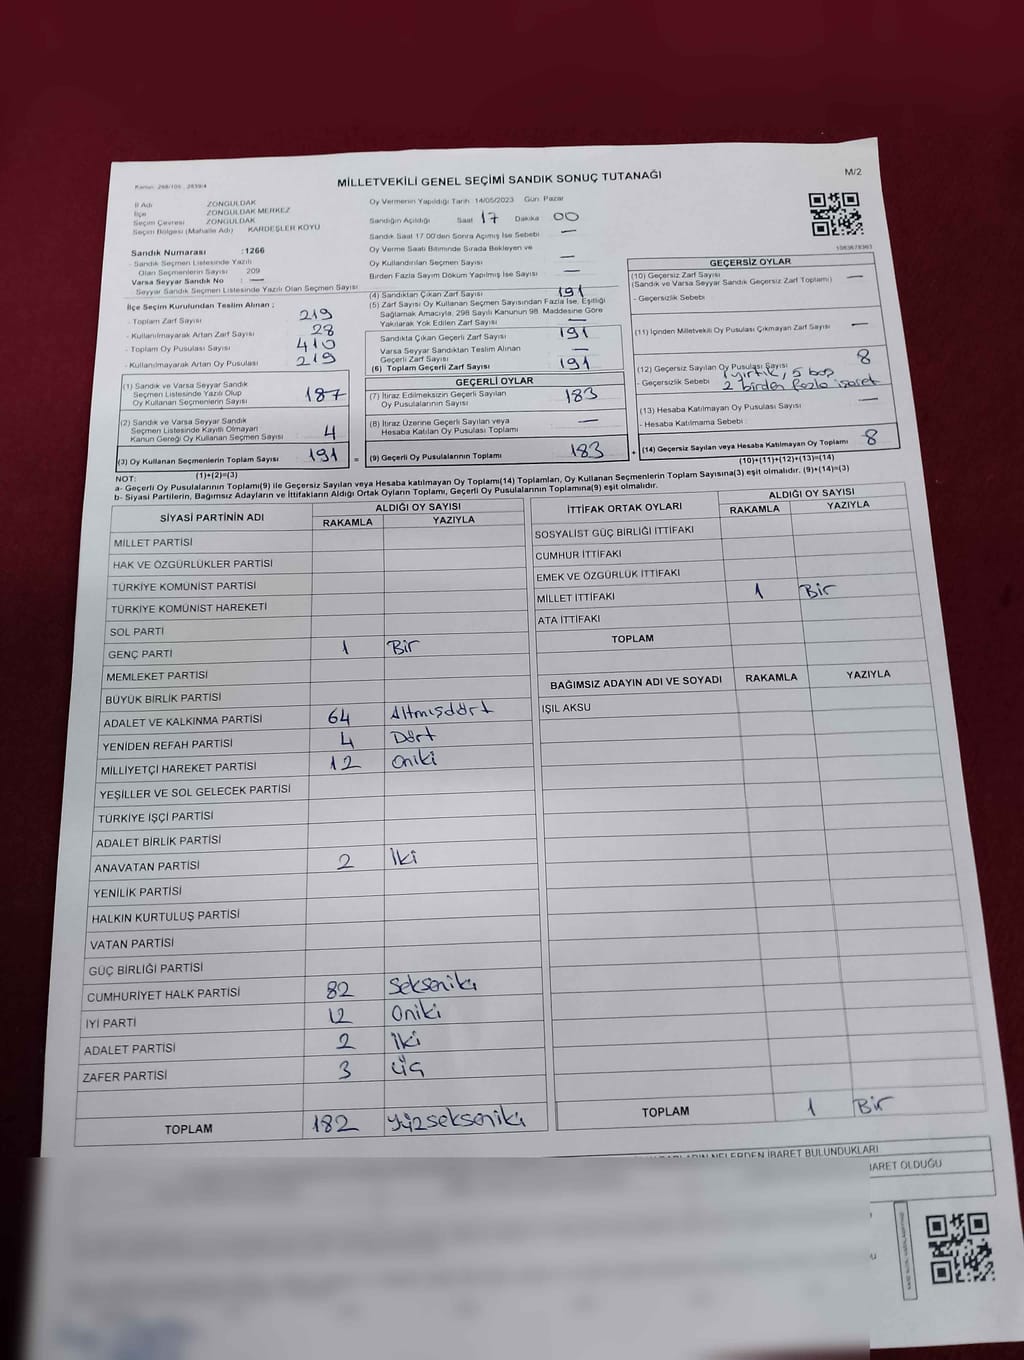 Kanun: 298/105, 2839/4
MİLLETVEKİLİ GENEL SEÇİMİ SANDIK SONUÇ TUTANAĞI
M/2
İl Adı ZONGULDAK
İlçe ZONGULDAK MERKEZ
Seçim Çevresi ZONGULDAK
Seçim Bölgesi (Mahalle Adı) KARDEŞLER KÖYÜ
Sandık Numarası :1266
- Sandık Seçmen Listesinde Yazılı
Olan Seçmenlerin Sayısı 209
Varsa Seyyar Sandık No : —
Seyyar Sandık Seçmen Listesinde Yazılı Olan Seçmen Sayısı
Oy Vermenin Yapıldığı Tarih: 14/05/2023 Gün: Pazar
Sandığın Açıldığı Saat 17 Dakika 00
Sandık Saat 17.00'den Sonra Açılmış İse Sebebi —
Oy Verme Saati Bitiminde Sırada Bekleyen ve
Oy Kullandırılan Seçmen Sayısı —
Birden Fazla Sayım Döküm Yapılmış İse Sayısı —
İlçe Seçim Kurulundan Teslim Alınan ;
- Toplam Zarf Sayısı 219
- Kullanılmayarak Artan Zarf Sayısı 28
- Toplam Oy Pusulası Sayısı 410
- Kullanılmayarak Artan Oy Pusulası 219
(1) Sandık ve Varsa Seyyar Sandık
Seçmen Listesinde Yazılı Olup
Oy Kullanan Seçmenlerin Sayısı 187
(2) Sandık ve Varsa Seyyar Sandık
Seçmen Listesinde Kayıtlı Olmayan
Kanun Gereği Oy Kullanan Seçmen Sayısı 4
(3) Oy Kullanan Seçmenlerin Toplam Sayısı 191 =
(1)+(2)=(3)
(4) Sandıktan Çıkan Zarf Sayısı 191
(5) Zarf Sayısı Oy Kullanan Seçmen Sayısından Fazla İse, Eşitliği
Sağlamak Amacıyla, 298 Sayılı Kanunun 98. Maddesine Göre
Yakılarak Yok Edilen Zarf Sayısı —
Sandıkta Çıkan Geçerli Zarf Sayısı 191
Varsa Seyyar Sandıktan Teslim Alınan
Geçerli Zarf Sayısı —
(6) Toplam Geçerli Zarf Sayısı 191
GEÇERLİ OYLAR
(7) İtiraz Edilmeksizin Geçerli Sayılan
Oy Pusulalarının Sayısı 183
(8) İtiraz Üzerine Geçerli Sayılan veya
Hesaba Katılan Oy Pusulası Toplamı —
(9) Geçerli Oy Pusulalarının Toplamı 183 +
1083678363
GEÇERSİZ OYLAR
(10) Geçersiz Zarf Sayısı
(Sandık ve Varsa Seyyar Sandık Geçersiz Zarf Toplamı) —
- Geçersizlik Sebebi
(11) İçinden Milletvekili Oy Pusulası Çıkmayan Zarf Sayısı —
(12) Geçersiz Sayılan Oy Pusulası Sayısı 8
- Geçersizlik Sebebi 1 yırtık, 5 boş
2 birden fazla işaret
(13) Hesaba Katılmayan Oy Pusulası Sayısı —
- Hesaba Katılmama Sebebi :
(14) Geçersiz Sayılan veya Hesaba Katılmayan Oy Toplamı 8
(10)+(11)+(12)+(13)=(14)
NOT:
a- Geçerli Oy Pusulalarının Toplamı(9) ile Geçersiz Sayılan veya Hesaba katılmayan Oy Toplamı(14) Toplamları, Oy Kullanan Seçmenlerin Toplam Sayısına(3) eşit olmalıdır. (9)+(14)=(3)
b- Siyasi Partilerin, Bağımsız Adayların ve İttifakların Aldığı Ortak Oyların Toplamı, Geçerli Oy Pusulalarının Toplamına(9) eşit olmalıdır.
SİYASİ PARTİNİN ADI ALDIĞI OY SAYISI
RAKAMLA YAZIYLA
MİLLET PARTİSİ
HAK VE ÖZGÜRLÜKLER PARTİSİ
TÜRKİYE KOMÜNİST PARTİSİ
TÜRKİYE KOMÜNİST HAREKETİ
SOL PARTİ
GENÇ PARTİ 1 Bir
MEMLEKET PARTİSİ
BÜYÜK BİRLİK PARTİSİ
ADALET VE KALKINMA PARTİSİ 64 Altmışdört
YENİDEN REFAH PARTİSİ 4 Dört
MİLLİYETÇİ HAREKET PARTİSİ 12 Oniki
YEŞİLLER VE SOL GELECEK PARTİSİ
TÜRKİYE İŞÇİ PARTİSİ
ADALET BİRLİK PARTİSİ
ANAVATAN PARTİSİ 2 İki
YENİLİK PARTİSİ
HALKIN KURTULUŞ PARTİSİ
VATAN PARTİSİ
GÜÇ BİRLİĞİ PARTİSİ
CUMHURİYET HALK PARTİSİ 82 Sekseniki
İYİ PARTİ 12 Oniki
ADALET PARTİSİ 2 İki
ZAFER PARTİSİ 3 Üç
TOPLAM 182 Yüzsekseniki
İTTİFAK ORTAK OYLARI ALDIĞI OY SAYISI
RAKAMLA YAZIYLA
SOSYALİST GÜÇ BİRLİĞİ İTTİFAKI
CUMHUR İTTİFAKI
EMEK VE ÖZGÜRLÜK İTTİFAKI
MİLLET İTTİFAKI 1 Bir
ATA İTTİFAKI
TOPLAM
BAĞIMSIZ ADAYIN ADI VE SOYADI RAKAMLA YAZIYLA
IŞIL AKSU
TOPLAM 1 Bir
NELERDEN İBARET BULUNDUKLARI
İBARET OLDUĞU